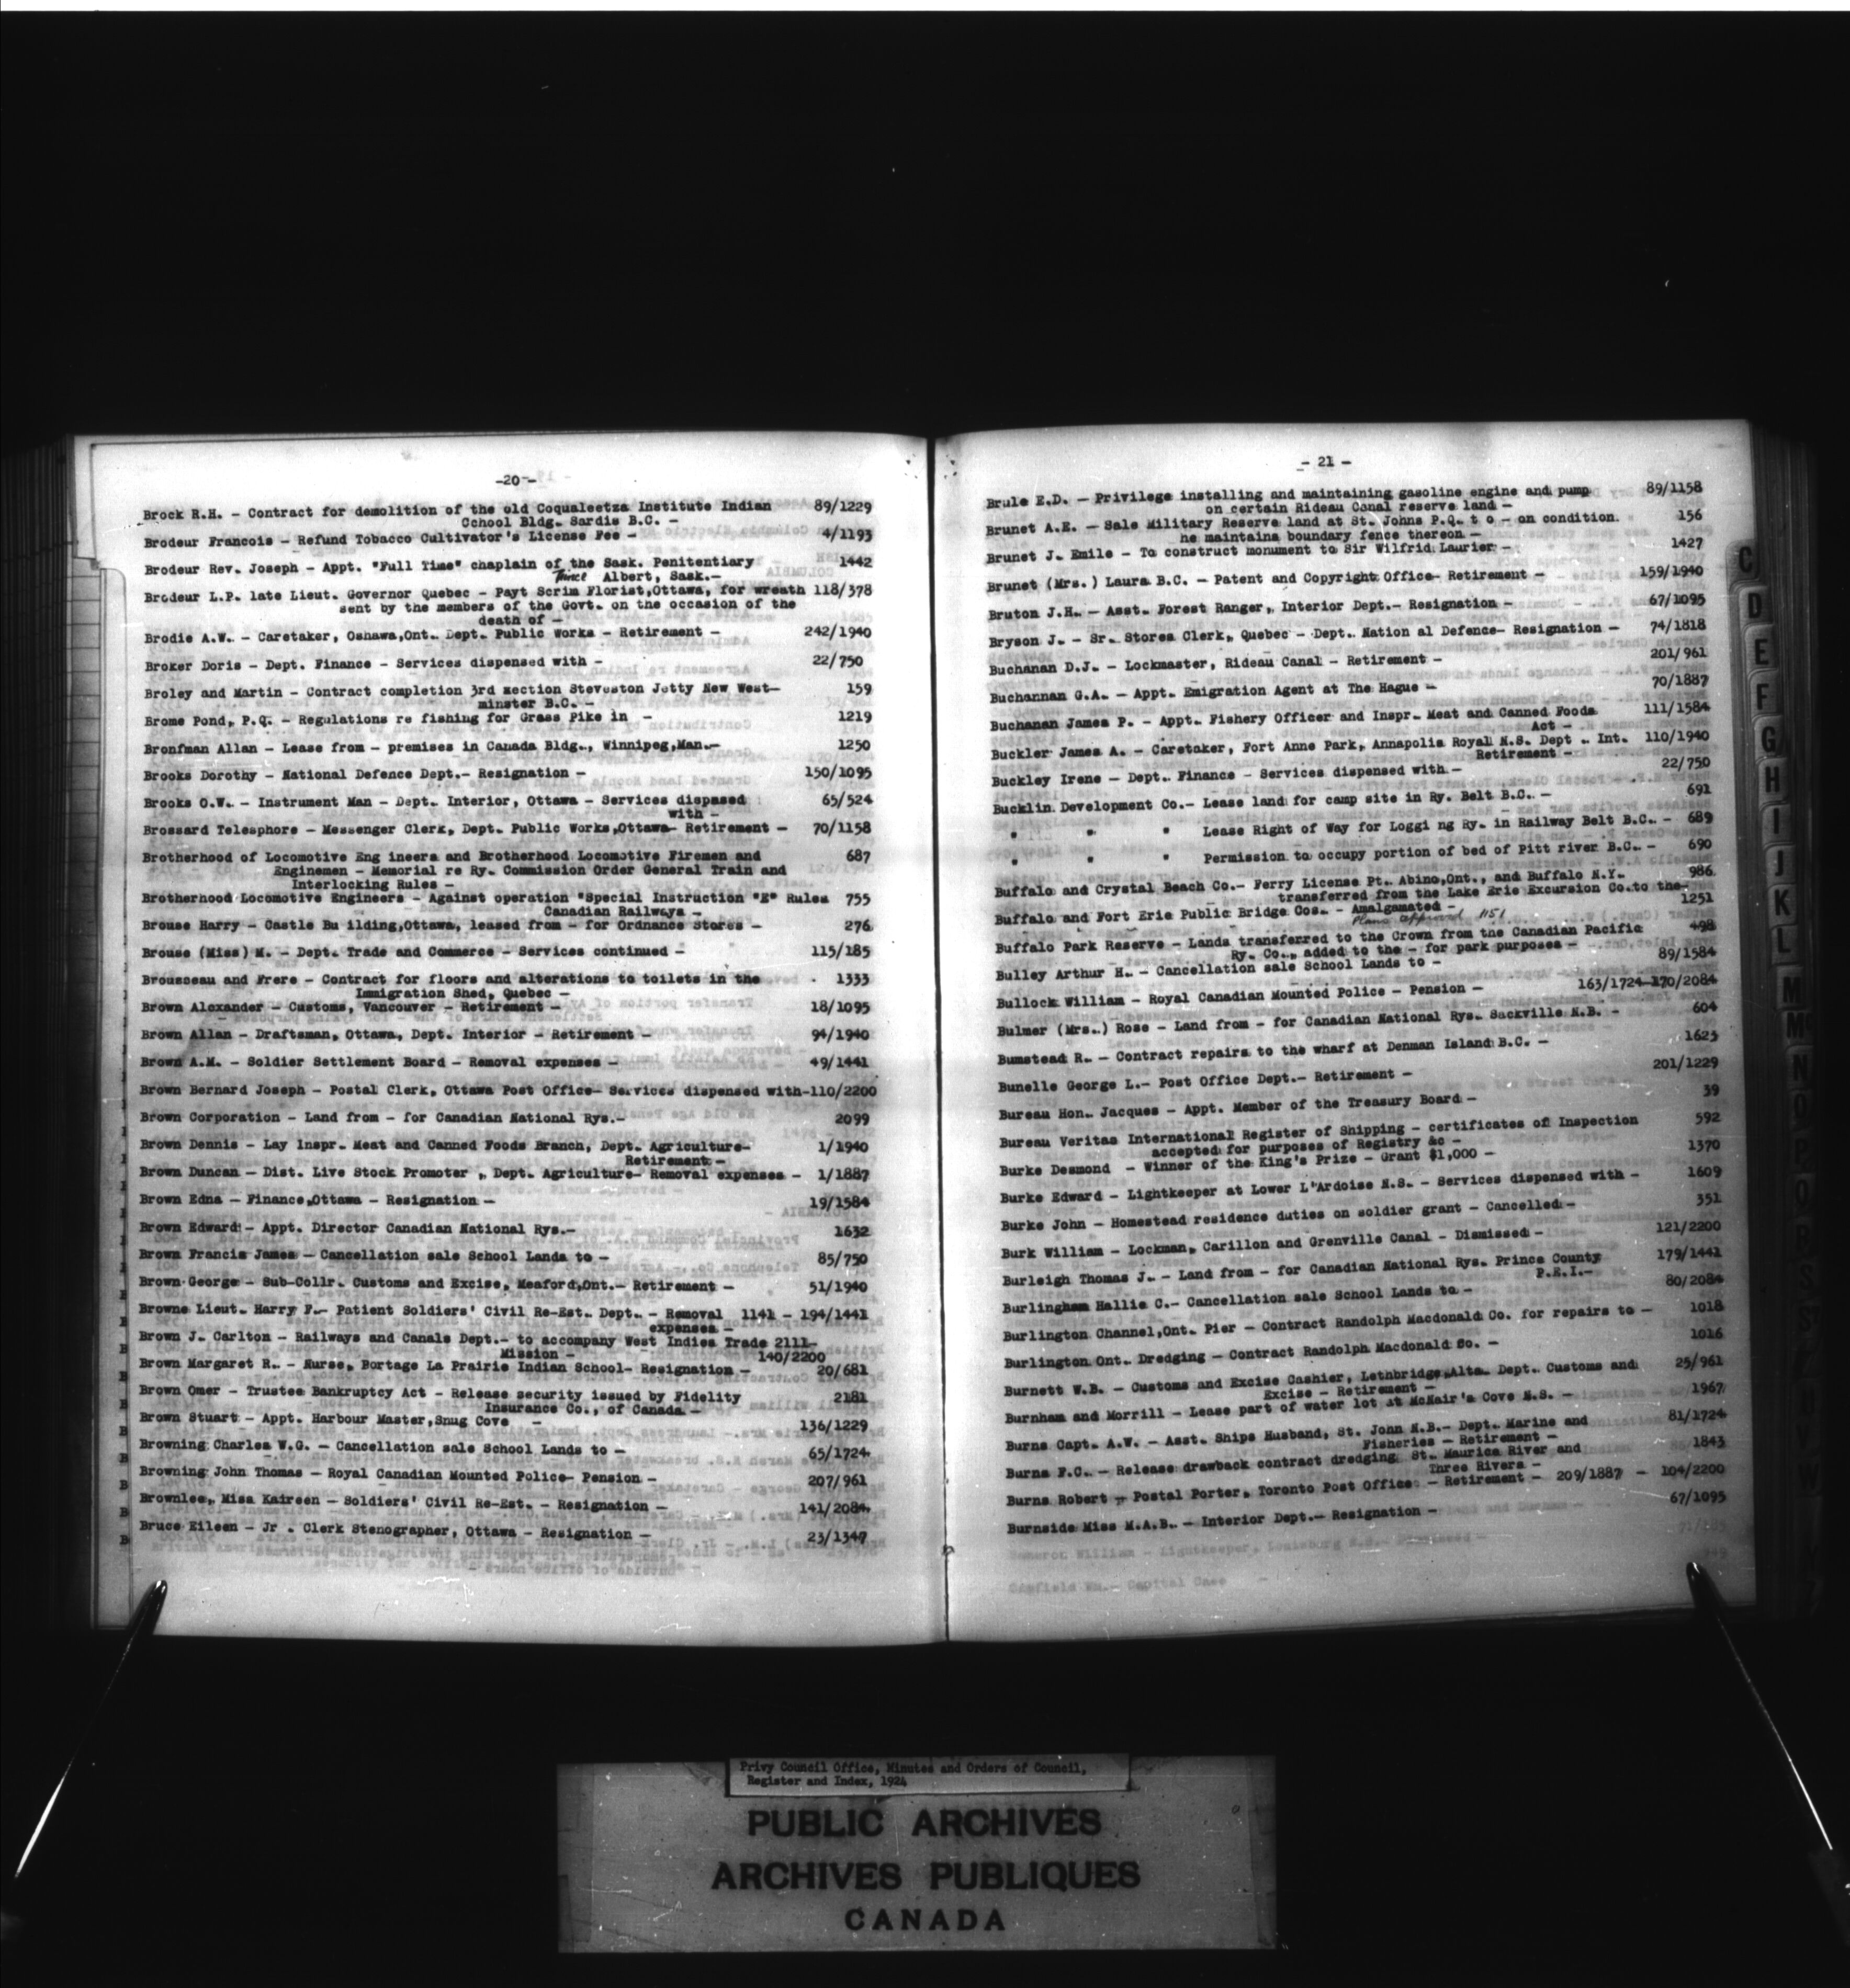 -20-
Brock R.H. - Contract for demolition of the old Coqualeetza Institute Indian 89/1229
Cchool Bldg. Sardis B.C. -
Brodeur Francois - Refund Tobacco Cultivator's License Fee - 4/1193
Brodeur Rev. Joseph - Appt. "Full Time" chaplain of the Sask. Penitentiary 1442
Prince Albert, Sask.-
Brodeur L.P. late Lieut. Governor Quebec - Payt Scrim Florist,Ottawa, for wreath 118/378
sent by the members of the Govt. on the occasion of the
death of -
Brodie A.W. - Caretaker, Oshawa,Ont. Dept. Public Works - Retirement - 242/1940
Broker Doris - Dept. Finance - Services dispensed with - 22/750
Broley and Martin - Contract completion 3rd section Steveston Jetty New West- 159
minster B.C. -
Brome Pond, P.Q. - Regulations re fishing for Grass Pike in - 1219
Bronfman Allan - Lease from - premises in Canada Bldg., Winnipeg,Man.- 1250
Brooks Dorothy - National Defence Dept.- Resignation - 150/1095
Brooks O.W. - Instrument Man - Dept. Interior, Ottawa - Services dispased 65/524
with -
Brossard Telesphore - Messenger Clerk, Dept. Public Works,Ottawa- Retirement - 70/1158
Brotherhood of Locomotive Eng ineers and Brotherhood Locomotive Firemen and 687
Enginemen - Memorial re Ry. Commission Order General Train and
Interlocking Rules -
Brotherhood Locomotive Engineers - Against operation "Special Instruction "E" Rules 755
Canadian Railways -
Brouse Harry - Castle Bu ilding,Ottawa, leased from - for Ordnance Stores - 276
Brouse (Miss) M. - Dept. Trade and Commerce - Services continued - 115/185
Brousseau and Frere - Contract for floors and alterations to toilets in the 1333
Immigration Shed, Quebec -
Brown Alexander - Customs, Vancouver - Retirement - 18/1095
Brown Allan - Draftsman, Ottawa, Dept. Interior - Retirement - 94/1940
Brown A.M. - Soldier Settlement Board - Removal expenses - 49/1441
Brown Bernard Joseph - Postal Clerk, Ottawa Post Office- Services dispensed with-110/2200
Brown Corporation - Land from - for Canadian National Rys.- 2099
Brown Dennis - Lay Inspr. Meat and Canned Foods Branch, Dept. Agriculture- 1/1940
Retirement -
Brown Duncan - Dist. Live Stock Promoter , Dept. Agriculture- Removal expenses - 1/1887
Brown Edna - Finance,Ottawa - Resignation - 19/1584
Brown Edward - Appt. Director Canadian National Rys.- 1632
Brown Francis James - Cancellation sale School Lands to - 85/750
Brown George - Sub-Collr. Customs and Excise, Meaford,Ont.- Retirement - 51/1940
Browne Lieut. Harry F.- Patient Soldiers' Civil Re-Est. Dept. - Removal 1141 - 194/1441
expenses -
Brown J. Carlton - Railways and Canals Dept.- to accompany West Indies Trade 2111-
Mission - 140/2200
Brown Margaret R. - Nurse, Portage La Prairie Indian School- Resignation - 20/681
Brown Omer - Trustee Bankruptcy Act - Release security issued by Fidelity 2181
Insurance Co., of Canada -
Brown Stuart - Appt. Harbour Master,Snug Cove - 136/1229
Browning Charles W.G. - Cancellation sale School Lands to - 65/1724
Browning John Thomas - Royal Canadian Mounted Police- Pension - 207/961
Brownlee, Miss Kaireen - Soldiers' Civil Re-Est. - Resignation - 141/2084
Bruce Eileen - Jr . Clerk Stenographer, Ottawa - Resignation - 23/1347
- 21 -
Brule E.D. - Privilege installing and maintaining gasoline engine and pump 89/1158
on certain Rideau Canal reserve land -
Brunet A.E. - Sale Military Reserve land at St. Johns P.Q. t o - on condition. 156
he maintains boundary fence thereon -
Brunet J. Emile - To construct monument to Sir Wilfrid Laurier - 1427
Brunet (Mrs.) Laura B.C. - Patent and Copyright Office- Retirement - 159/1940
Bruton J.H. - Asst. Forest Ranger, Interior Dept.- Resignation - 67/1095
Bryson J. - Sr. Stores Clerk, Quebec - Dept. Nation al Defence- Resignation - 74/1818
Buchanan D.J. - Lockmaster, Rideau Canal - Retirement - 201/961
Buchannan G.A. - Appt. Emigration Agent at The Hague - 70/1887
Buchanan James P. - Appt. Fishery Officer and Inspr. Meat and Canned Foods 111/1584
Act -
Buckler James A. - Caretaker, Fort Anne Park, Annapolis Royal N.S. Dept . Int. 110/1940
Retirement -
Buckley Irene - Dept. Finance - Services dispensed with - 22/750
Bucklin Development Co.- Lease land for camp site in Ry. Belt B.C. - 691
" " " Lease Right of Way for Loggi ng Ry. in Railway Belt B.C. - 689
" " " Permission to occupy portion of bed of Pitt river B.C. - 690
Buffalo and Crystal Beach Co.- Ferry License Pt. Abino,Ont., and Buffalo N.Y. 986
transferred from the Lake Erie Excursion Co.to the-
Buffalo and Fort Erie Public Bridge Cos. - Amalgamated - 1251
Plans approved 1151
Buffalo Park Reserve - Lands transferred to the Crown from the Canadian Pacific 498
Ry. Co., added to the - for park purposes -
Bulley Arthur H. - Cancellation sale School Lands to - 89/1584
Bullock William - Royal Canadian Mounted Police - Pension - 163/1724-170/2084
Bulmer (Mrs.) Rose - Land from - for Canadian National Rys. Sackville N.B. - 604
Bumstead R. - Contract repairs to the wharf at Denman Island B.C. - 1623
Bunelle George L.- Post Office Dept.- Retirement - 201/1229
Bureau Hon. Jacques - Appt. Member of the Treasury Board - 39
Bureau Veritas International Register of Shipping - certificates of Inspection 592
accepted for purposes of Registry &c -
Burke Desmond - Winner of the King's Prize - Grant $1,000 - 1370
Burke Edward - Lightkeeper at Lower L'Ardoise N.S. - Services dispensed with - 1609
Burke John - Homestead residence duties on soldier grant - Cancelled - 351
Burk William - Lockman, Carillon and Grenville Canal - Dismissed - 121/2200
Burleigh Thomas J. - Land from - for Canadian National Rys. Prince County 179/1441
P.E.I.-
Burlingham Hallie C.- Cancellation sale School Lands to - 80/2084
Burlington Channel,Ont. Pier - Contract Randolph Macdonald Co. for repairs to - 1018
Burlington Ont. Dredging - Contract Randolph Macdonald Co. - 1016
Burnett W.B. - Customs and Excise Cashier, Lethbridge,Alta. Dept. Customs and 25/961
Excise - Retirement -
Burnham and Morrill - Lease part of water lot at McNair's Cove N.S. - 1967
Burns Capt. A.W. - Asst. Ships Husband, St. John N.B.- Dept. Marine and 81/1724
Fisheries - Retirement -
Burns F.C. - Release drawback contract dredging St. Maurice River and 1843
Three Rivers -
Burns Robert - Postal Porter, Toronto Post Office - Retirement - 209/1887 - 104/2200
Burnside Miss M.A.B. - Interior Dept.- Resignation - 67/1095
C
D
E
F
G
H
I
J
K
L
M
M
N
O
P
Q
R
S
Privy Council Office, Minutes and Orders of Council,
Register and Index, 1924
PUBLIC ARCHIVES
ARCHIVES PUBLIQUES
CANADA